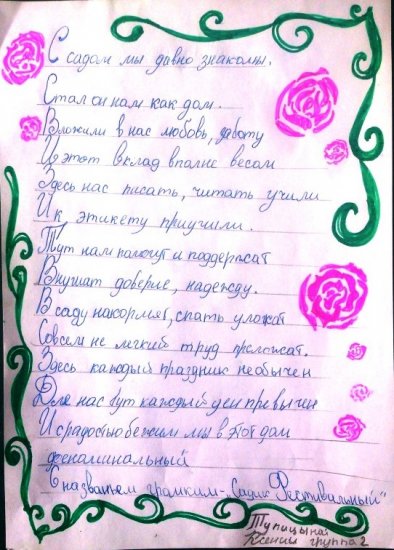 С садом мы давно знакомы.
Стал он нам как дом.
Вложили в нас любовь, заботу
И этот вклад вполне весом
Здесь нас писать, читать учили
И к этикету приучили.
Тут нам помогут и поддержат
Внушат доверие, надежду.
В саду накормят, спать уложат
Совсем не легкий труд преложат.
Здесь каждый праздник необычен
Для нас тут каждый угол привычен
И с радостью бежим мы в этот дом
феноминальный
С названьем громким-„Садик Фестивальный"
Тупицына
Ксения группа 2